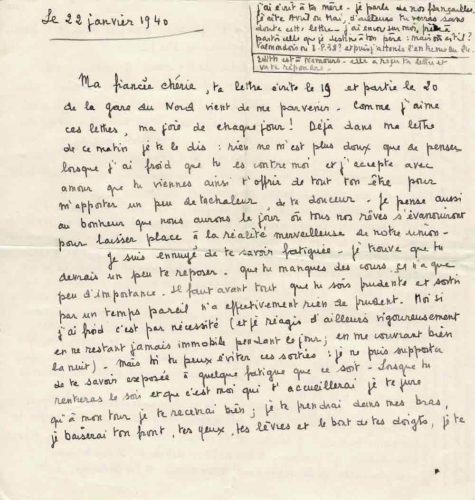 Le 22 janvier 1940
j'ai écrit à ta mère - je parle de nos fiançailles.
je dite Avril ou Mai, d'ailleurs tu verras sans
doute cette lettre - j'ai encore sur moi, prête à
partir celle que je destine à ton père : mais où est-il ?
Valmondois ou S.P.48 ? et puis j'attends l'entrevue du
Edith est à Nemours - elle a reçu ta lettre et
va te répondre.
Ma fiancée chérie, ta lettre écrite le 19 et partie le 20
de la gare du Nord vient de me parvenir. Comme j'aime
ces lettres, ma joie de chaque jour ! Déjà dans ma lettre
de ce matin je te le dis : rien ne m'est plus doux que de penser
lorsque j'ai froid que tu es contre moi et j'accepte avec
amour que tu viennes ainsi t'offrir de tout ton être pour
m'apporter un peu de ta chaleur, de ta douceur. Je pense aussi
au bonheur que nous aurons le jour où tous nos rêves s'évanouiront
pour laisser place à la réalité merveilleuse de notre union -
Je suis ennuyé de te savoir fatiguée. je trouve que tu
devrais un peu te reposer. que tu manques des cours, n'a que
peu d'importance. Il faut avant tout que tu sois prudente et sortir
par un temps pareil n'a effectivement rien de prudent. Moi si
j'ai froid c'est par nécessité (et je réagis d'ailleurs vigoureusement
en ne restant jamais immobile pendant le jour, en me couvrant bien
la nuit). Mais toi tu peux éviter ces sorties : je ne puis supporter
de te savoir exposée à quelque fatigue que ce soit - Lorsque tu
rentreras le soir et que c'est moi qui t'accueillerai je te jure
qu'à mon tour je te recevrai bien ; je te prendrai dans mes bras,
je baiserai ton front, tes yeux, tes lèvres et le bout de tes doigts, je te